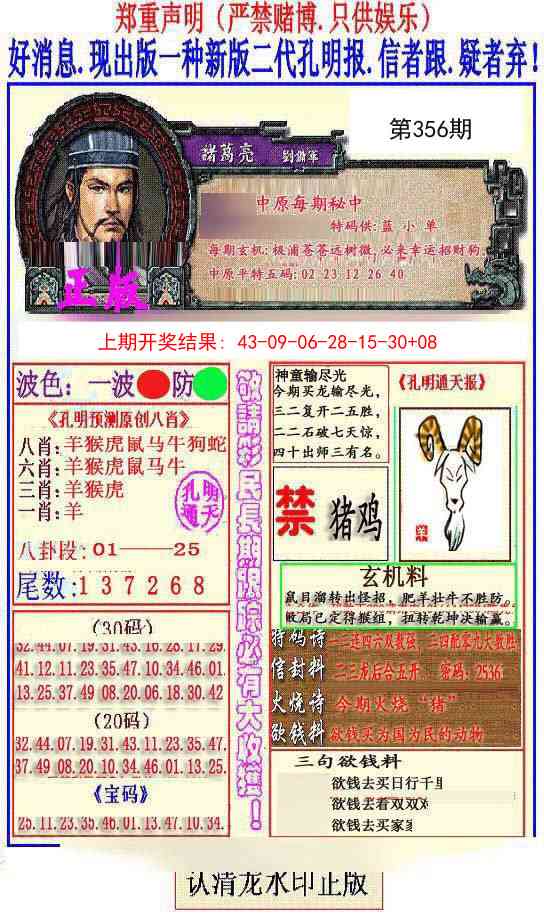 郑重声明（严禁赌博.只供娱乐）
好消息.现出版一种新版二代孔明报.信者跟.疑者弃！
第356期
諸葛亮 劉備軍
中原每期秘中
特码供:蓝 小 单
每期玄机:极浦苍苍远树微,必来幸运招财狗
中原平特五码:02 23 12 26 40
正版
上期开奖结果: 43-09-06-28-15-30+08
波色: 一波 防
《孔明预测原创八肖》
八肖:羊猴虎鼠马牛狗蛇
六肖:羊猴虎鼠马牛
三肖:羊猴虎
一肖:羊
孔明通天
八卦段:01——25
尾数:137268
(30码)
32.44.07.19.31.43.16.28.17.29.
41.12.11.23.35.47.10.34.46.01
13.25.37.49.08.20.06.18.30.42
(20码)
32.44.07.19.31.43.11.23.35.47.
37.49.08.20.10.34.46.01.13.25.
《宝码》
25.11.23.35.46.01.13.47.10.34.
敬請彩民長期跟踪必有大收獲！
神童输尽光
今期买龙输尽光，
三二复开二五胜，
二二石破七天惊，
四十出师三有名。
《孔明通天报》
羊
禁 猪鸡
玄机料
鼠目溜转出怪招，肥羊壮牛不胜防。
败局已定得猴纽，扭转乾坤决输赢。
特码诗 一二连四六及数强，三四配零九大数胜
信封料 二三龙后合五开. 密码：2536
火烧诗 今期火烧“猪”
欲钱料 欲钱买为国为民的动物
三句欲钱料
欲钱去买日行千里
欲钱去看双双对
欲钱去买家
认清龙水印正版